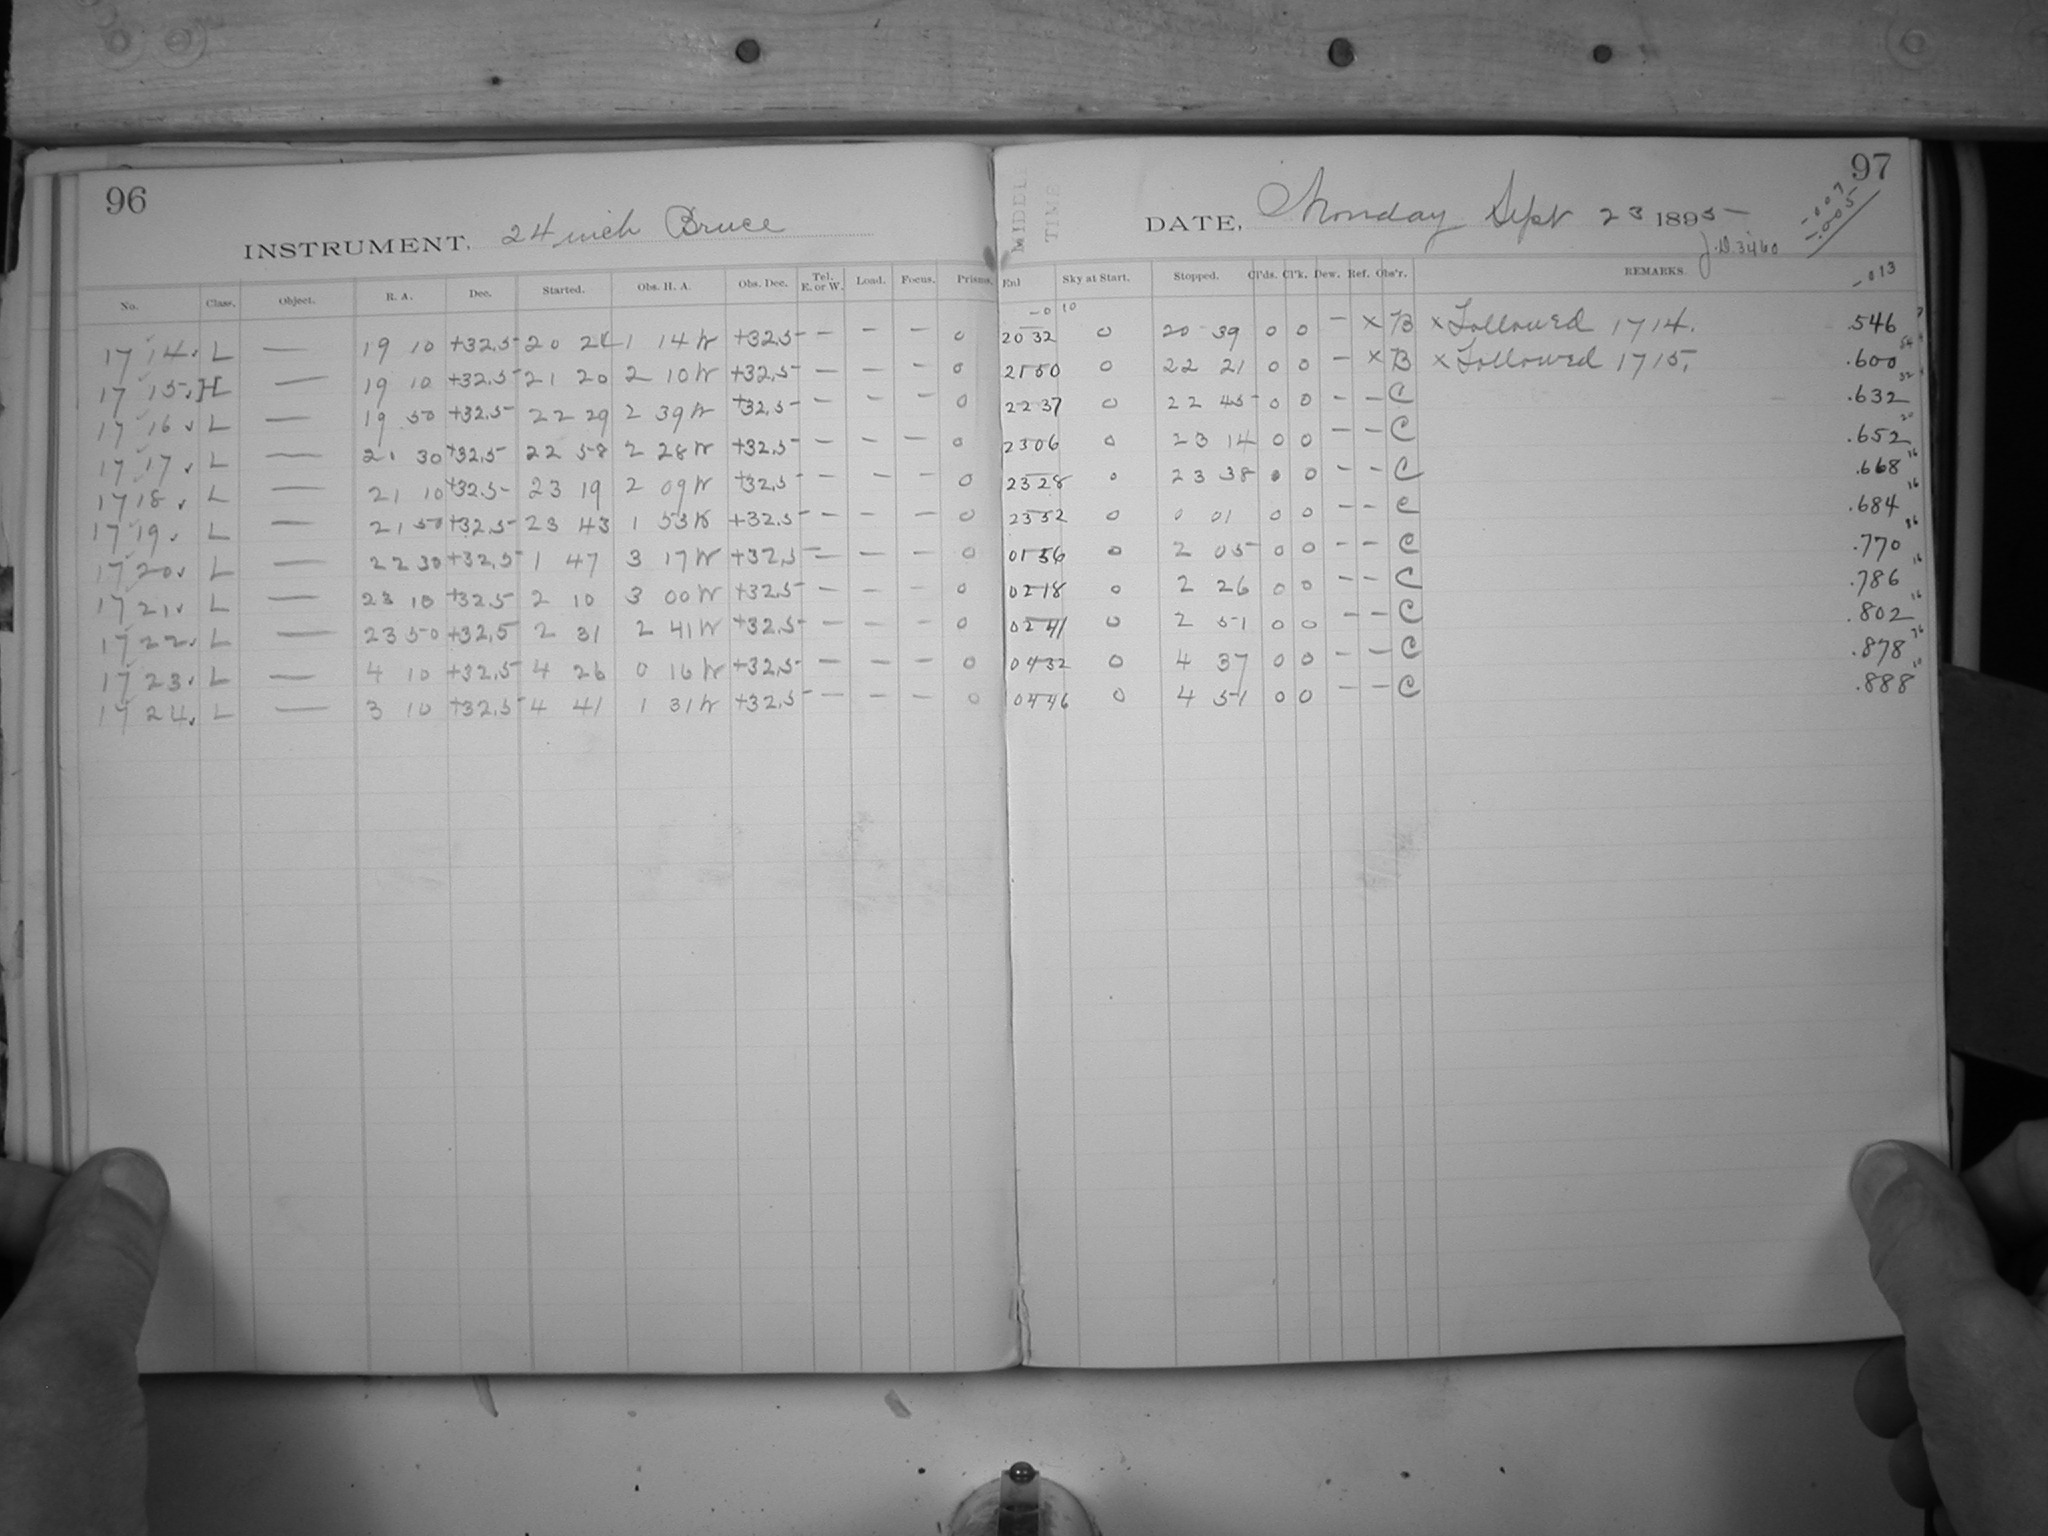 96
INSTRUMENT, 24 inch Bruce
No. Class. Object. R. A. Dec. Started. Obs. H. A. Obs. Dec. Tel. E. or W. Load. Focus. Prisms.
1714. L — 19 10 +32.5 20 24 1 14 W +32.5 — — — 0
1715. HL — 19 10 +32.5 21 20 2 10 W +32.5 — — — 0
1716. L — 19 50 +32.5 22 29 2 39 W +32.5 — — — 0
1717. L — 21 30 +32.5 22 58 2 28 W +32.5 — — — 0
1718. L — 21 10 +32.5 23 19 2 09 W +32.5 — — — 0
1719. L — 21 50 +32.5 23 43 1 53 W +32.5 — — — 0
1720. L — 22 30 +32.5 1 47 3 17 W +32.5 — — — 0
1721. L — 23 10 +32.5 2 10 3 00 W +32.5 — — — 0
1722. L — 23 50 +32.5 2 31 2 41 W +32.5 — — — 0
1723. L — 4 10 +32.5 4 26 0 16 W +32.5 — — — 0
1724. L — 3 10 +32.5 4 41 1 31 W +32.5 — — — 0
97
MIDDL.
TIME
DATE, Monday Sept 23 1895
J.D. 3460
-.007
-.005
-.013
Exl Sky at Start. Stopped. Cl'ds. Cl'k. Dew. Ref. Obs'r. REMARKS.
-0 10
20 32 0 20 39 0 0 — x B x Followed 1714. .546
21 50 0 22 21 0 0 — x B x Followed 1715. .600 54
22 37 0 22 45 0 0 — — C .632 32
23 06 0 23 14 0 0 — — C .652 20
23 28 0 23 38 0 0 — — C .668 16
23 52 0 0 01 0 0 — — C .684 16
01 56 0 2 05 0 0 — — C .770 86
02 18 0 2 26 0 0 — — C .786 16
02 41 0 2 51 0 0 — — C .802 16
04 32 0 4 37 0 0 — — C .878 76
04 46 0 4 51 0 0 — — C .888 10